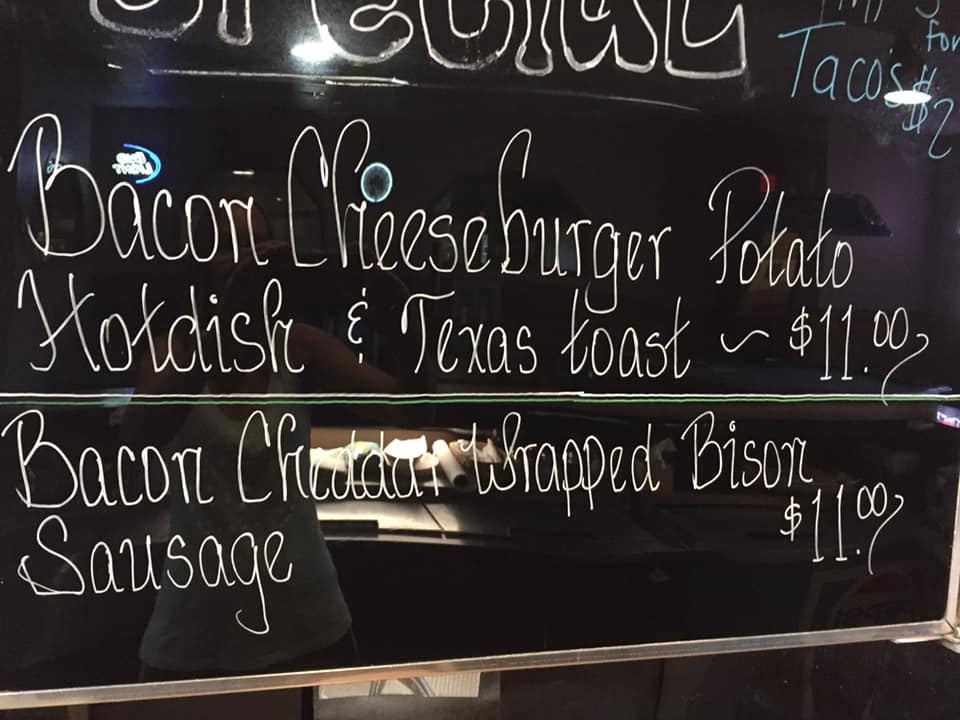 Tacos for
$2
Bacon Cheeseburger Potato
Hotdish & Texas toast ~ $11.00
Bacon Cheddar Wrapped Bison
Sausage $11.00